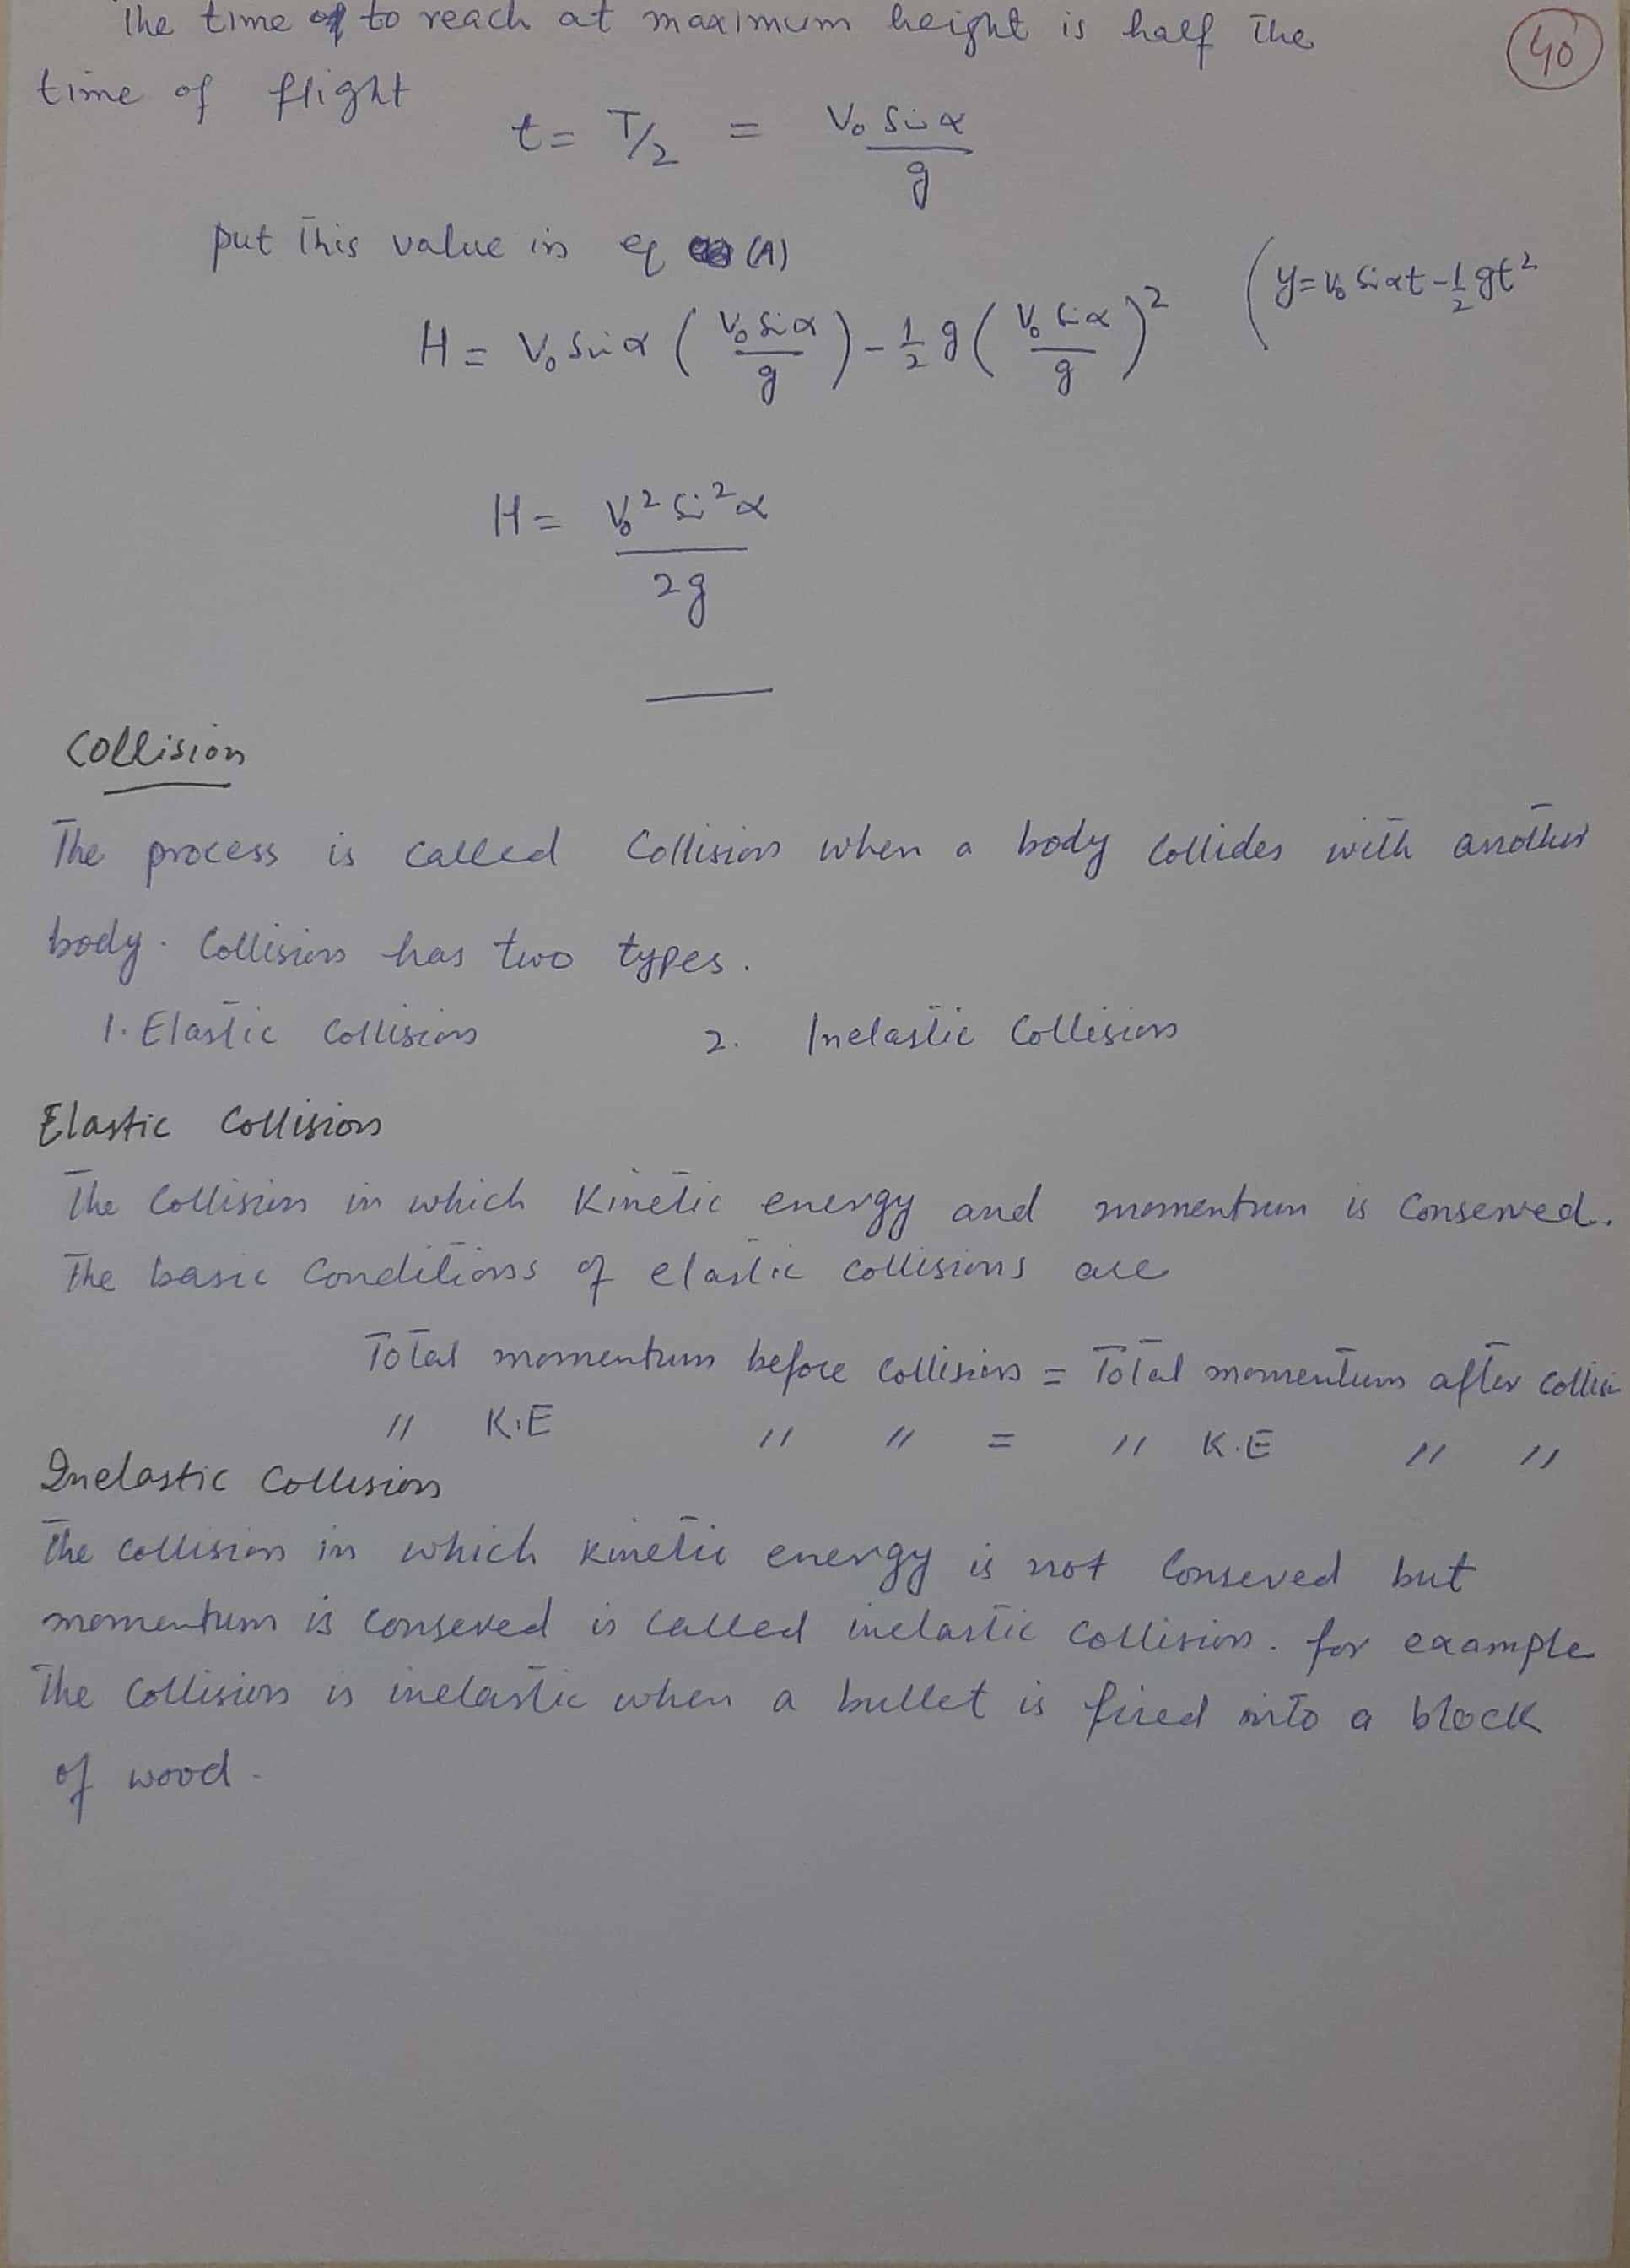 The time of to reach at maximum height is half the
40
time of flight
t = T/2 = V₀ Sin α / g
put this value in eq (A)
(y = V₀ Sin αt - 1/2 gt²
H = V₀ Sin α ( V₀ Sin α / g ) - 1/2 g ( V₀ Sin α / g )²
H = V₀² Sin² α / 2g
Collision
The process is called Collision when a body Collides with another
body. Collision has two types.
1. Elastic Collision 2. Inelastic Collision
Elastic Collision
The Collision in which Kinetic energy and momentum is Conserved.
The basic Conditions of elastic collisions are
Total momentum before Collision = Total momentum after Collisi
" K.E " " = " K.E " "
Inelastic Collision
The collision in which kinetic energy is not Conseved but
momentum is conseved is called inelastic collision. for example
The Collision is inelastic when a bullet is fired into a block
of wood.